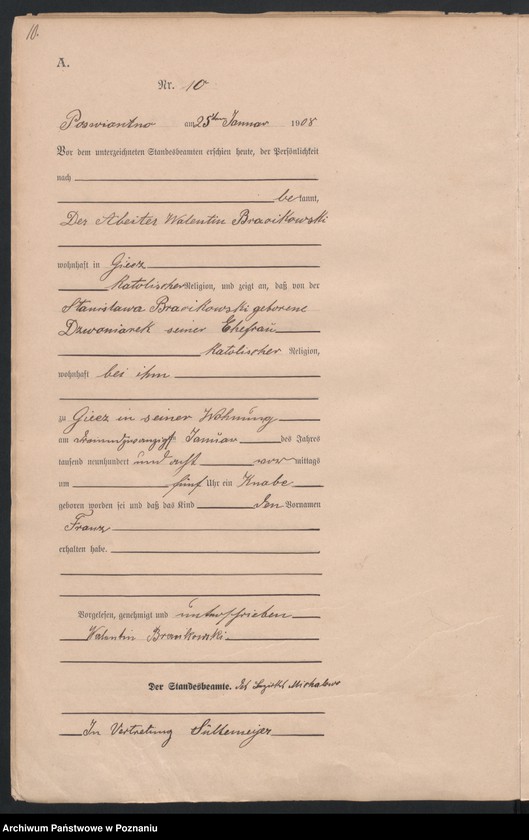 10.
A.
Nr. 10
Poswiantno am 25ten Januar 1908
Vor dem unterzeichneten Standesbeamten erschien heute, der Persönlichkeit
nach
bekannt,
Der Abeiter Walentin
wohnhaft in Giecz
Katolischer Religion, und zeigt an, daß von der
Stanislawa geborene
Dzwoniarek seiner Ehefrau
Katolischer Religion,
wohnhaft bei ihm
zu Giecz in seiner Wohnung
am Januar des Jahres
tausend neunhundert und acht vor mittags
um fünf Uhr ein Knabe
geboren worden sei und daß das Kind den Vornamen
Franz
erhalten habe.
Vorgelesen, genehmigt und unterschrieben
Walentin
Der Standesbeamte. des Bezirks
In Vertretung
Archiwum Państwowe w Poznaniu